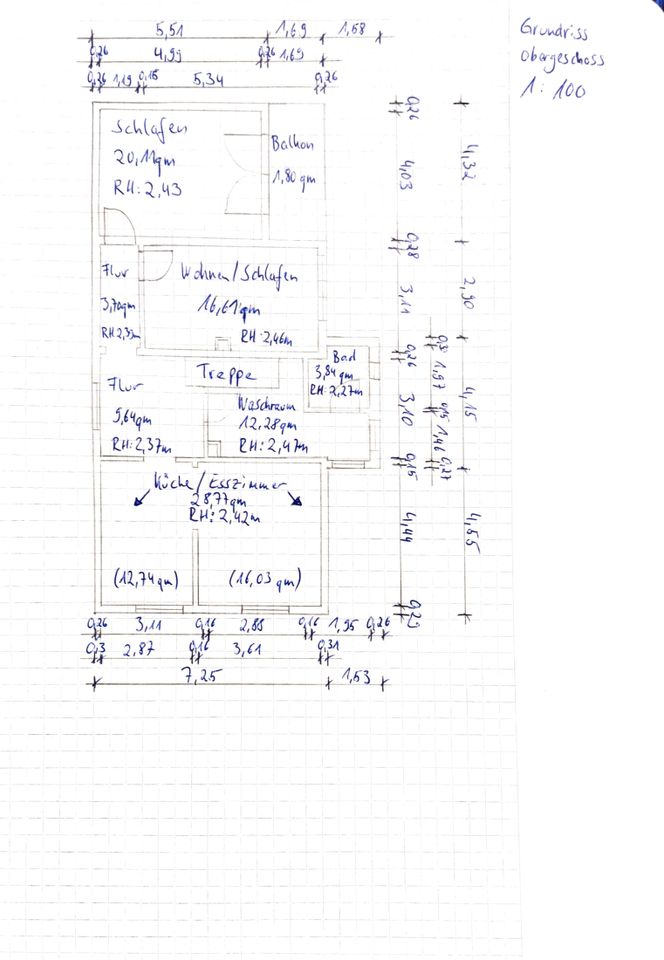 Grundriss
Obergeschoss
1:100
5,51 1,69 1,58
0,26 4,99 0,26 1,69
0,26 1,19 0,15 5,34 0,26
Schlafen
20,11qm
RH: 2,43
Balkon
1,80 qm
Flur
3,70qm
RH 2,35m
Wohnen/Schlafen
16,61qm
RH: 2,46m
Treppe
Bad
3,84 qm
RH: 2,27m
Flur
9,64qm
RH: 2,37m
Waschraum
12,28qm
RH: 2,47m
Küche/Esszimmer
28,77qm
RH: 2,42m
(12,74qm) (16,03 qm)
0,26 4,03 0,28 3,11 0,26 3,10 0,15 4,44 0,23
1,97 0,15 1,46 0,27
4,32 2,90 4,15 4,55
0,26 3,11 0,16 2,88 0,16 1,95 0,26
0,3 2,87 0,16 3,61 0,31
7,25 1,53